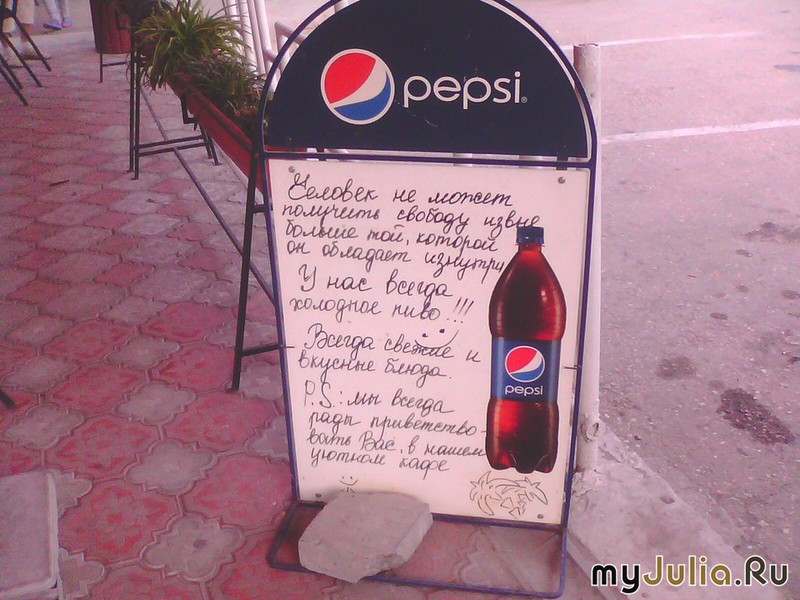 pepsi
Человек не может
получить свободу извне
больше той, которой
он обладает изнутри
У нас всегда
холодное пиво!!!
Всегда свежие и
вкусные блюда.
P.S.: мы всегда
рады приветство-
вать Вас, в нашем
уютном кафе
pepsi
myJulia.Ru